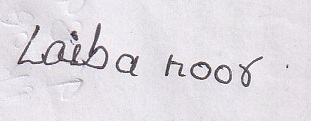 Laiba noor.